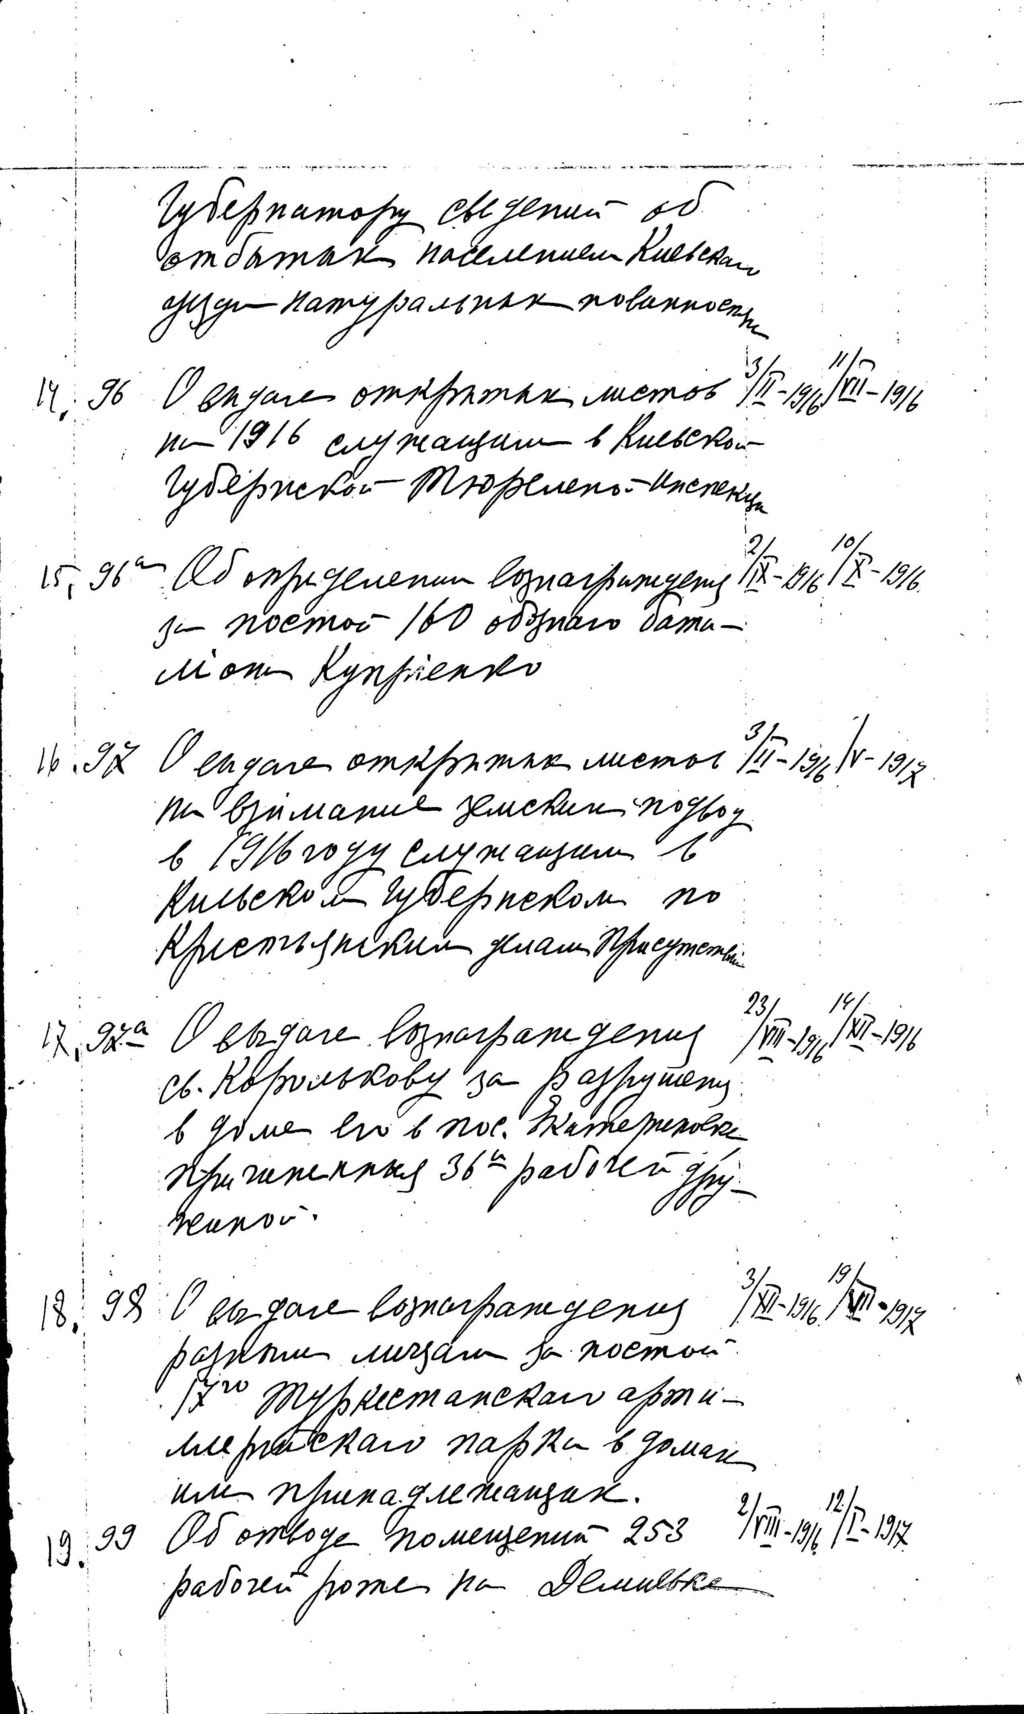 Губернатору сведений об
отбытых населением Киевскаго
уезда натуральных повинностях
14. 96 О выдаче открытых листов 3/II-1916 11/VII-1916
на 1916 служащим в Киевской
Губернской Тюремной Инспекции
15. 96а Об определении вознаграждения 2/IX-1916 10/X-1916
за постой 160 обознаго бата-
лiона Купрiенко
16. 97 О выдаче открытых листов 3/II-1916 /V-1917
на взимание земских подвод
в 1916 году служащим в
Киевском Губернском по
Крестьянским делам Присутствии
17. 97а О выдаче вознаграждения 23/VIII-1916 14/XII-1916
св. Королькову за разрушения
в доме его в пос. Екатериновке
причиненныя 36й рабочей дру-
жиной.
18. 98 О выдаче вознаграждения 3/XII-1916 19/VII-1917
разным лицам за постой
17го Туркестанскаго арти-
лерийскаго парка в домах
им принадлежащих.
19. 99 Об отводе помещений 253 2/VIII-1916 12/I-1917
рабочей роте на Демиевке